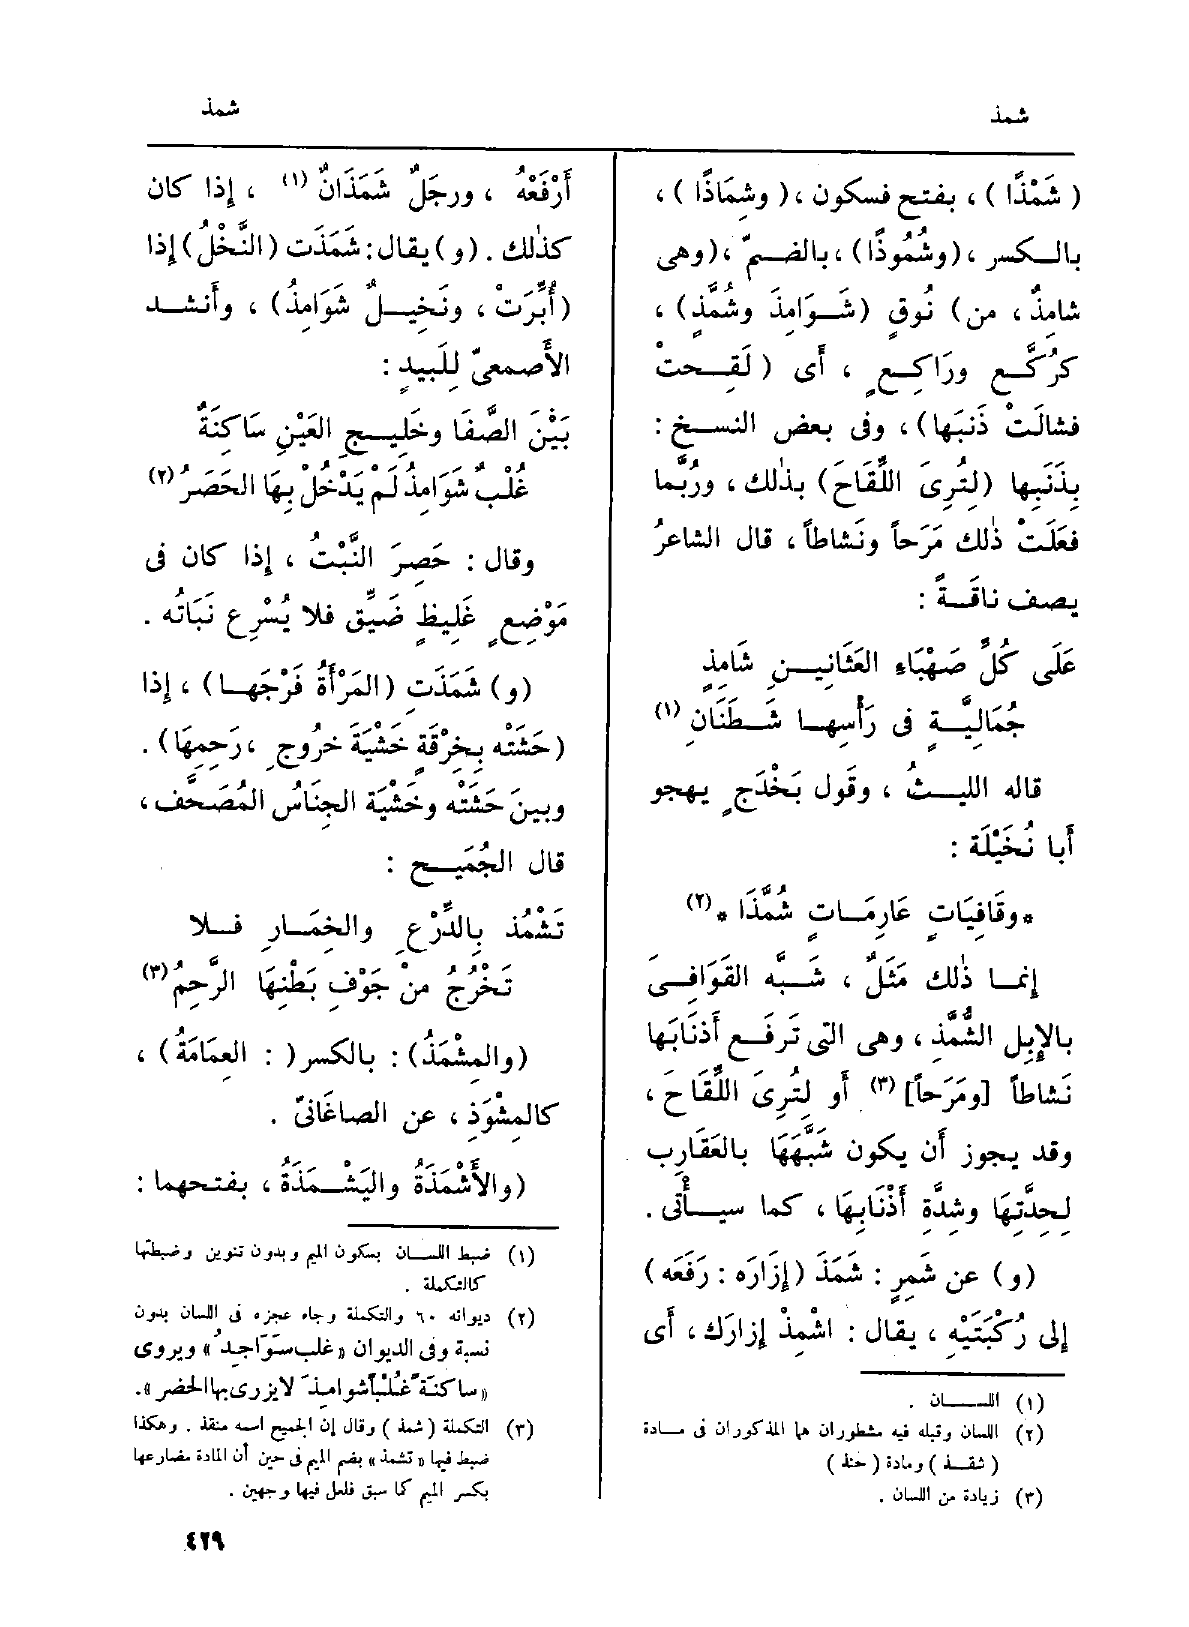 شمذ
شمذ
(شَمْذًا)، بفتح فسكون، (وشِمَاذًا)،
بالكسر، (وشُمُوذًا)، بالضمّ، (وهى
شامِذٌ، من) نُوقٍ (شَوَامِذَ وشُمَّذٍ)،
كرُكَّعٍ ورَاكِعٍ، أى (لَقِحتْ
فشالَتْ ذَنبَها)، وفى بعض النسخ:
بِذَنَبِها (لِتُرِىَ اللَّقَاحَ) بذٰلك، ورُبَّما
فعَلَتْ ذٰلك مَرَحاً ونَشاطاً، قال الشاعرُ
يصف ناقَةً:
عَلَى كُلِّ صَهْبَاءِ العَثانِينِ شَامِذٍ
جُمَالِيَّةٍ فى رَأْسِها شَطَنَانِ (١)
قاله الليثُ، وقول بَخْدَجٍ يهجو
أَبا نُخَيْلَة:
*وقَافِيَاتٍ عَارِمَاتٍ شُمَّذَا* (٢)
إنما ذٰلك مَثَلٌ، شَبَّه القَوَافِىَ
بالإِبِلِ الشُّمَّذِ، وهى التى تَرفَع أَذنَابَها
نَشاطاً [ومَرَحاً] (٣) أَو لِتُرِىَ اللَّقَاحَ،
وقد يجوز أَن يكون شَبَّهَهَا بالعَقَارِب
لِحِدَّتِها وشدَّةِ أَذْنَابِهَا، كما سيأْتى.
(و) عن شَمِرٍ: شَمَذَ (إِزَارَه: رَفَعَه)
إلى رُكْبَتَيْهِ، يقال: اشْمِذْ إِزارَك، أَى
(١) اللسان.
(٢) اللسان وقبله فيه مشطوران هما المذكوران فى مادة
(شقذ) ومادة (حنذ)
(٣) زيادة من اللسان.
أَرْفَعْهُ، ورجَلٌ شَمَذَانٌ (١)، إِذا كان
كذٰلك. (و) يقال: شَمَذَت (النَّخْلُ) إِذا
(أُبِّرَتْ، ونَخِيلٌ شَوَامِذُ)، وأَنشد
الأَصمعىّ لِلَبِيدٍ:
بَيْنَ الصَّفَا وخَلِيجِ العَيْنِ سَاكِنَةٌ
غُلْبٌ شَوَامِذُ لَمْ يَدْخُلْ بِهَا الحَصَرُ (٢)
وقال: حَصِرَ النَّبْتُ، إِذا كان فى
مَوْضِعٍ غَلِيظٍ ضَيِّقٍ فلا يُسْرِع نَبَاتُه.
(و) شَمَذَتِ (المَرْأَةُ فَرْجَها)، إِذا
(حَشَتْه بِخِرْقَةٍ خَشْيَةَ خُروجِ، رَحِمِهَا).
وبينَ حَشَتْه وخَشْيَة الجِنَاسُ المُصَحَّف،
قال الجُمَيح:
تَشْمُذ بِالدِّرْعِ والخِمَارِ فلا
تَخْرُجُ مِنْ جَوْفِ بَطْنِهَا الرَّحِمُ (٣)
(والمِشْمَذُ): بالكسر (: العِمَامَةُ)،
كالمِشْوَذِ، عن الصاغَانىّ.
(والأَشْمَذَةُ واليَشْمَذَةُ، بفتحهما:
(١) ضبط اللسان بسكون الميم وبدون تنوين وضبطها
كالتكملة.
(٢) ديوانه ٦٠ والتكملة وجاء عجزه فى اللسان بدون
نسبة وفى الديوان «غلب سَوَاجِدُ» ويروى
«ساكنَةً غُلْباً شوامِذَ لا يزرى بها الحضر».
(٣) التكملة (شمذ) وقال إن الجميح اسمه منقذ. وهكذا
ضبط فيها «تشمذ» بضم الميم فى حين أن المادة مضارعها
بكسر الميم كما سبق فلعل فيها وجهين.
٤٢٩